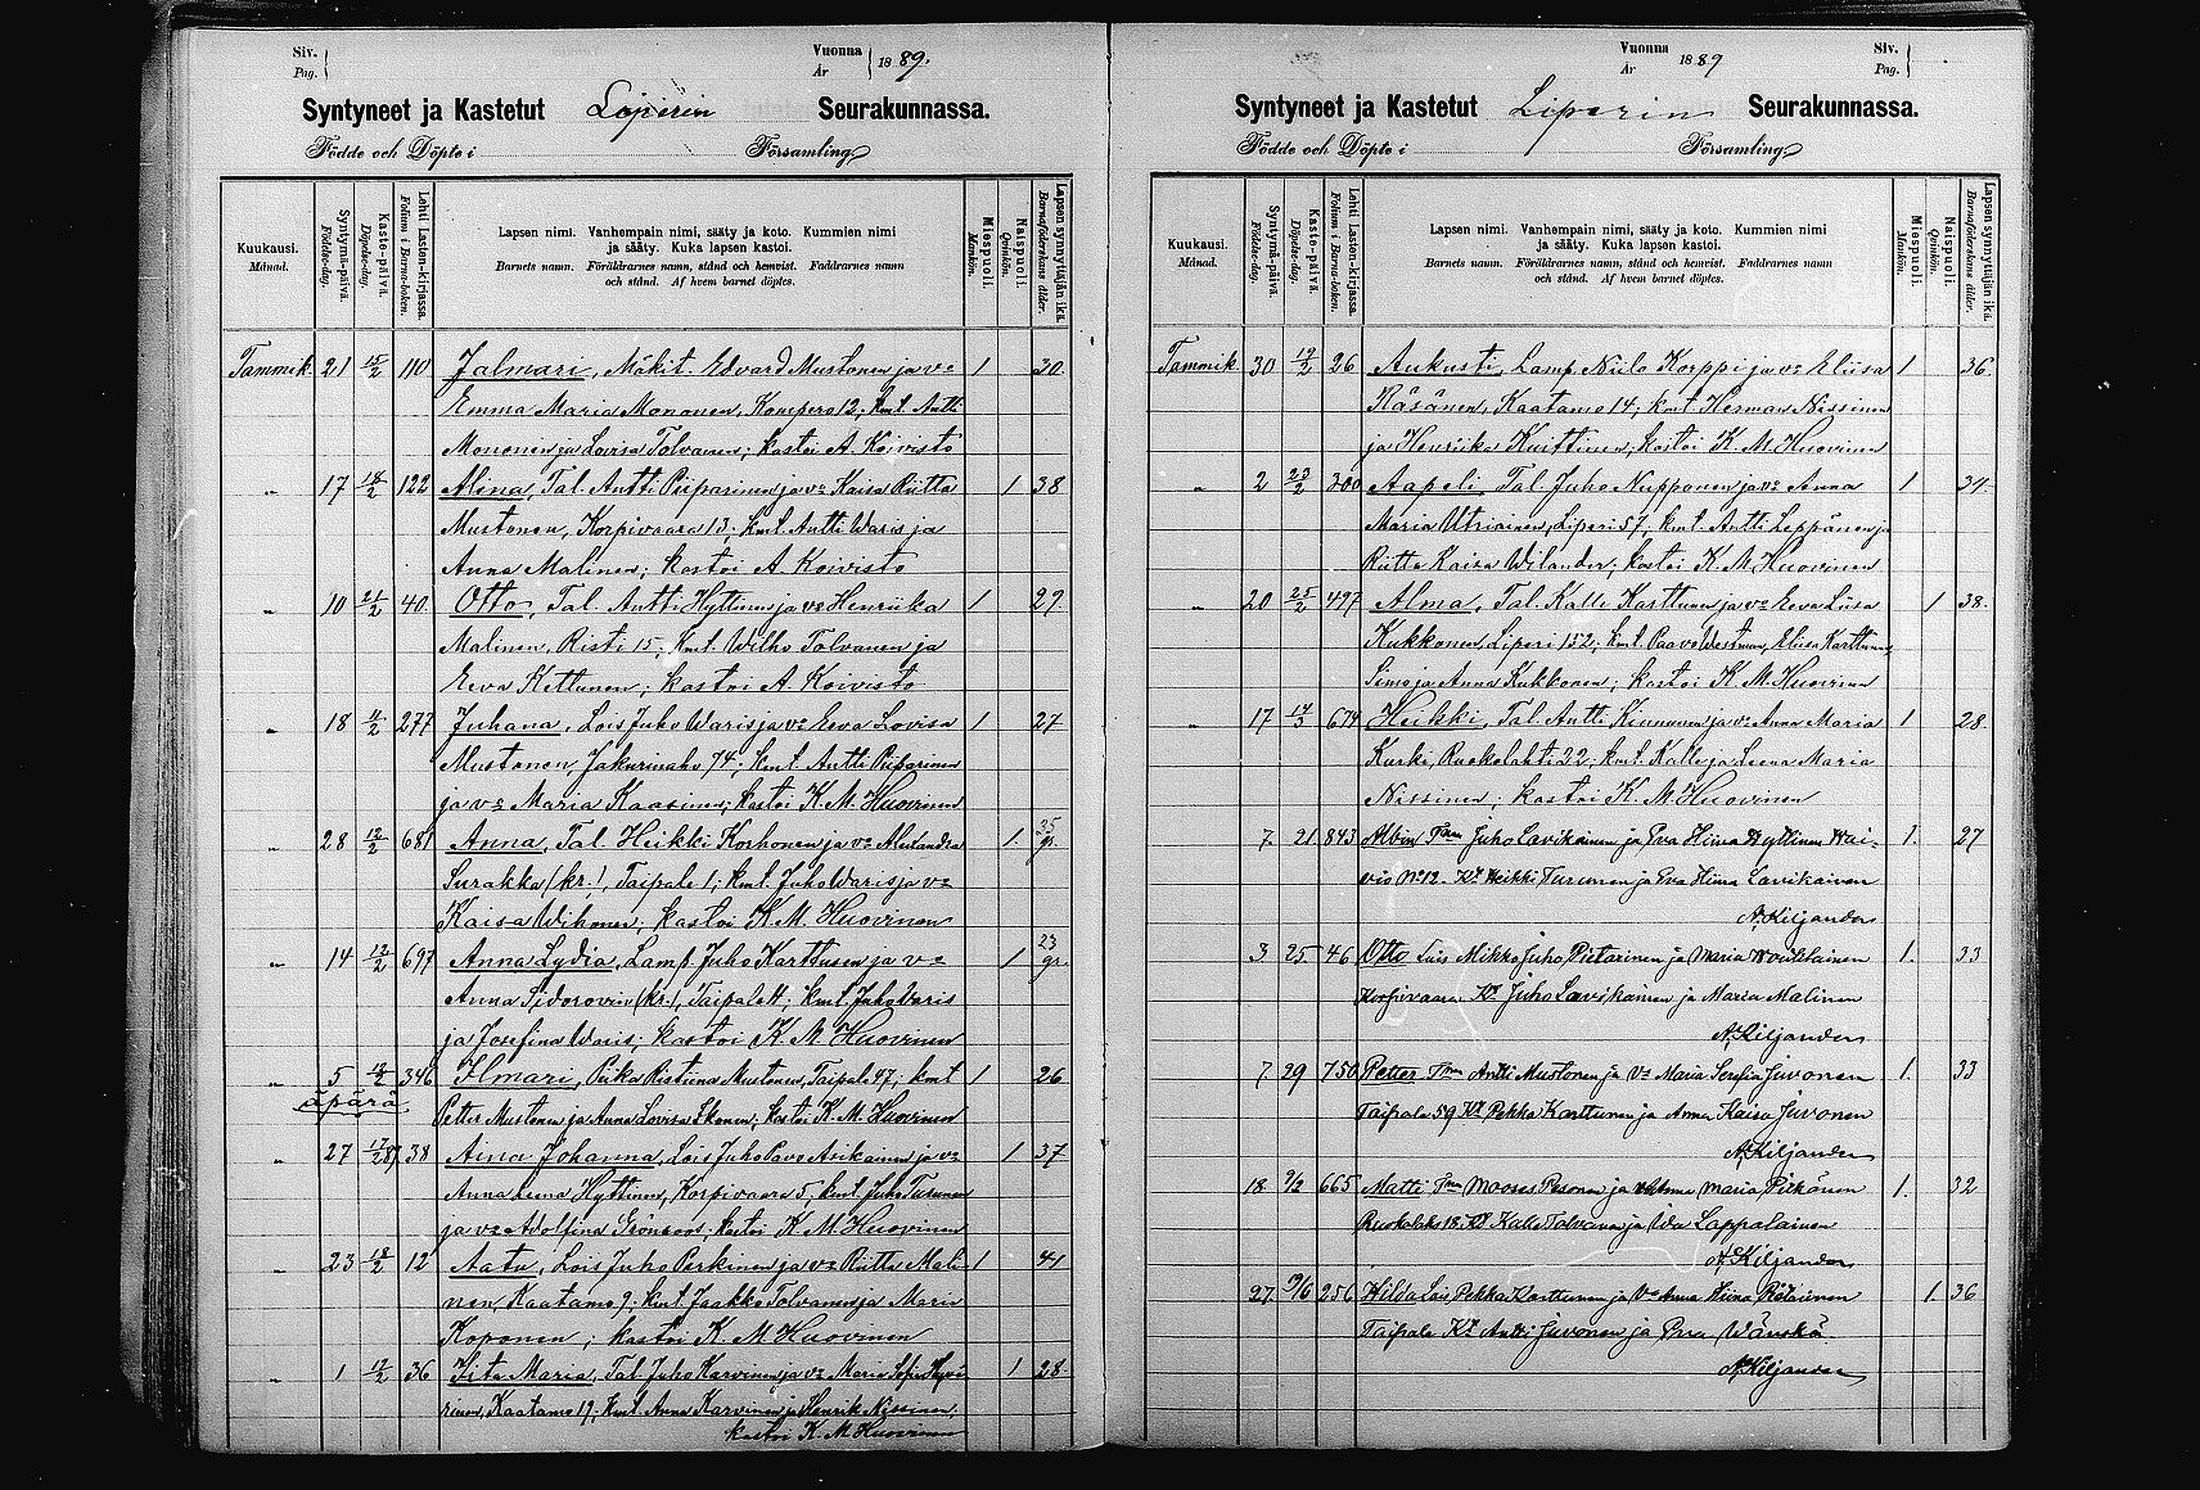 Siv.
Pag.
Vuonna
År
1889.
Syntyneet ja Kastetut Liperin Seurakunnassa.
Födde och Döpte i Församling
Kuukausi.
Månad.
Syntymä-päivä.
Födelse-dag.
Kaste-päivä.
Döpelse-dag.
Lehti Lasten-kirjassa.
Folium i Barna-boken.
Lapsen nimi. Vanhempain nimi, sääty ja koto. Kummien nimi
ja sääty. Kuka lapsen kastoi.
Barnets namn. Föräldrarnes namn, stånd och hemvist. Faddrarnes namn
och stånd. Af hvem barnet döptes.
Miespuoli.
Mankön.
Naispuoli.
Qvinkön.
Lapsen synnyttäjän ikä.
Barnaföderskans ålder.
Tammik. 21 15/2 110 Jalmari, Mäkit. Edvard Mustonen ja vo 1 30.
Emma Maria Mononen, Kompero 12; kmt. Antti
Mononen ja Lovisa Tolvanen; kastoi A. Koivisto
" 17 18/2 122 Alina, Tal. Antti Piiparinen ja vo Kaisa Riitta 1 38
Mustonen, Korpivaara 13; kmt. Antti Waris ja
Anna Malinen; kastoi A. Koivisto
" 10 21/2 40. Otto, Tal. Antti Hyttinen ja vo Henriika 1 29.
Malinen, Risti 15; kmt. Wilho Tolvanen ja
Eeva Kettunen; kastoi A. Koivisto
" 18 11/2 277 Juhana, Lois Juho Waris ja vo Eeva Lovisa 1 27
Mustonen, Jakurinaho 74; kmt. Antti Piiparinen
ja vo Maria Kaasinen; kastoi K. M. Huovinen
" 28 12/2 681 Anna, Tal. Heikki Korhonen ja vo Alexandra 1. 25 gr.
Surakka (kr.), Taipale 1; kmt. Juho Waris ja vo
Kaisa Wihonen; kastoi K. M. Huovinen
" 14 12/2 697 Anna Lydia, Lamp. Juho Karttunen ja vo 1 23 gr.
Anna Sidorovin (kr.), Taipale; kmt. Juho Waris
ja Josefina Waris; kastoi K. M. Huovinen
" 5 346 Ilmari, Piika Ristiina Mustonen, Taipale 47; kmt 1 26
äpärä Petter Mustonen ja Anna Lovisa Ikonen; kastoi K. M. Huovinen
" 27 17/2 38 Aina Johanna, Lois Juho Pavo Asikainen ja vo 1 37
Anna Leena Hyttinen, Korpivaara 5, kmt. Juho Turunen
ja vo Adolfina Grönroos; kastoi K. M. Huovinen
" 23 18/2 12 Aatu, Lois Juho Perkinen ja vo Riitta Mali- 1 41
nen, Kaatamo 9; kmt. Jaakko Tolvanen ja Maria
Koponen; kastoi K. M. Huovinen
" 1 17/2 36 Iita Maria, Tal. Juho Karvinen ja vo Maria Sofia Hyvä- 1 28.
rinen, Kaatamo 19; kmt. Anna Karvinen ja Henrik Nissinen;
kastoi K. M. Huovinen
Vuonna
År
1889
Siv.
Pag.
Syntyneet ja Kastetut Liperin Seurakunnassa.
Födde och Döpte i Församling
Kuukausi.
Månad.
Syntymä-päivä.
Födelse-dag.
Kaste-päivä.
Döpelse-dag.
Lehti Lasten-kirjassa.
Folium i Barna-boken.
Lapsen nimi. Vanhempain nimi, sääty ja koto. Kummien nimi
ja sääty. Kuka lapsen kastoi.
Barnets namn. Föräldrarnes namn, stånd och hemvist. Faddrarnes namn
och stånd. Af hvem barnet döptes.
Miespuoli.
Mankön.
Naispuoli.
Qvinkön.
Lapsen synnyttäjän ikä.
Barnaföderskans ålder.
Tammik. 30 19/2 26 Aukusti, Lamp. Niilo Korppi ja vo Eliisa 1 36.
Räsänen, Kaatamo 14; kmt Herman Nissinen
ja Henriika Kuittinen; kastoi K. M. Huovinen
" 2 23/2 300 Aapeli, Tal. Juho Nupponen ja vo Anna 1 34.
Maria Utriainen, Liperi 57, kmt. Antti Leppänen ja
Riitta Kaisa Wilander; kastoi K. M. Huovinen
" 20 25/2 497 Alma, Tal. Kalle Karttunen ja vo Eeva Liisa 1 38.
Kukkonen, Liperi 152; kmt. Paavo Westman, Eliisa Karttunen,
Simo ja Anna Kukkonen; kastoi K. M. Huovinen
" 17 14/3 674 Heikki, Tal. Antti Kinnunen ja vo Anna Maria 1 28.
Kurki, Ruokolahti 22; kmt. Kalle ja Leena Maria
Nissinen; kastoi K. M. Huovinen
7. 21. 843 Albin Tmn Juho Lavikainen ja Eva Hiina Hyttinen Wai- 1. 27
vio No 12. Kt Heikki Turunen ja Eva Hiina Lavikainen
A. Kiljander
3 25 46 Otto Lois Mikko Juho Pietarinen ja Maria Woutilainen 1. 33
Korpivaara Kt Juho Lavikainen ja Maria Malinen
A. Kiljander
7. 29 750 Petter Tmn Antti Mustonen ja Vo Maria Serafia Juvonen 1. 33
Taipale 59 Kt Pekka Karttunen ja Anna Kaisa Juvonen
A. Kiljander
18 9/2 665 Matti Tmn Mooses Pesonen ja vo Anna Maria Pitkänen 1. 32
Ruokolaks 18 Kt Kalle Tolvanen ja Ida Lappalainen
A. Kiljander
27 19/6 256 Hilda Lois Pekka Karttunen ja Vo Anna Hiina 1. 36
Taipale Kt Antti Juvonen ja Eva Wänskä
A. Kiljander